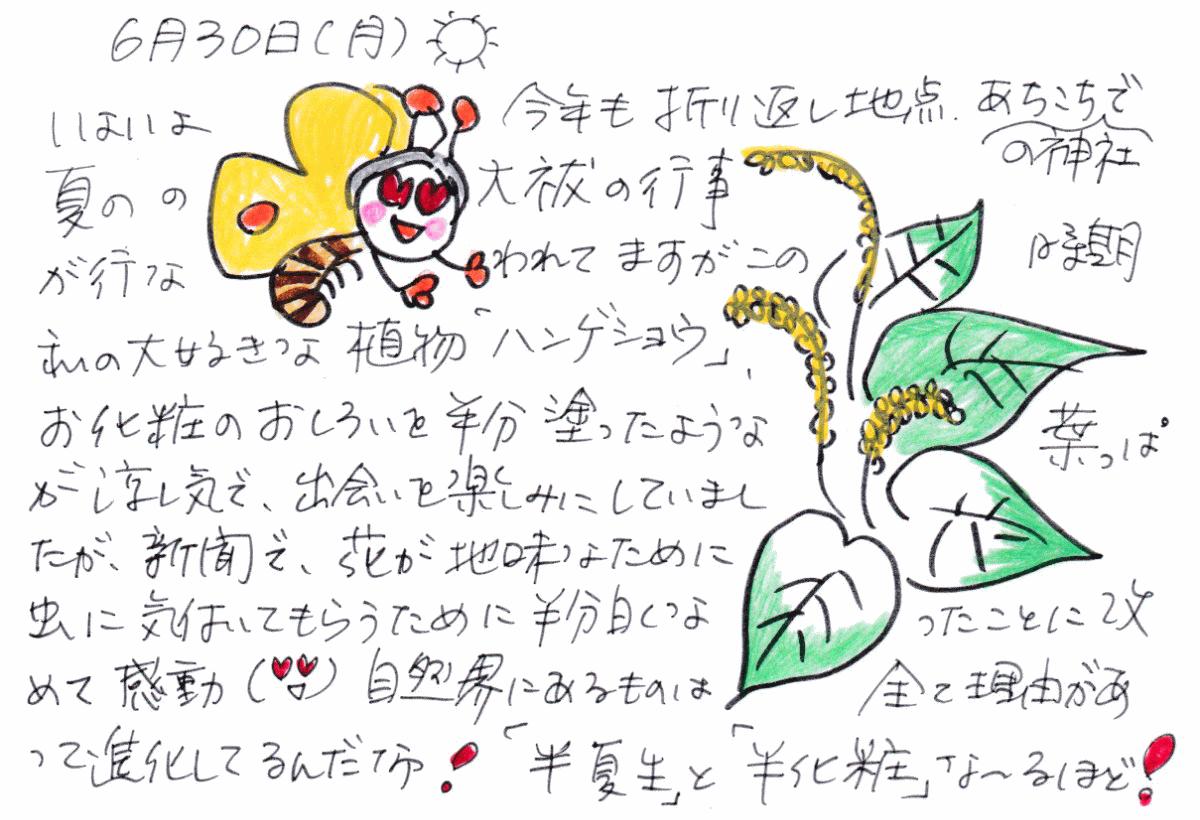 6月30日(月)
いよいよ 今年も折り返し地点.あちこちで
の神社
夏のの 大祓の行事
が行な われてますがこの 時期
私の大好きな植物「ハンゲショウ」、
お化粧のおしろいを半分塗ったような 葉っぱ
が涼し気で、出会いを楽しみにしていまし
たが、新聞で、花が地味なために
虫に気付いてもらうために半分白くな ったことに改
めて感動( )自然界にあるものは 全て理由があ
って進化してるんだナァ!「半夏生」と「半化粧」な〜るほど!